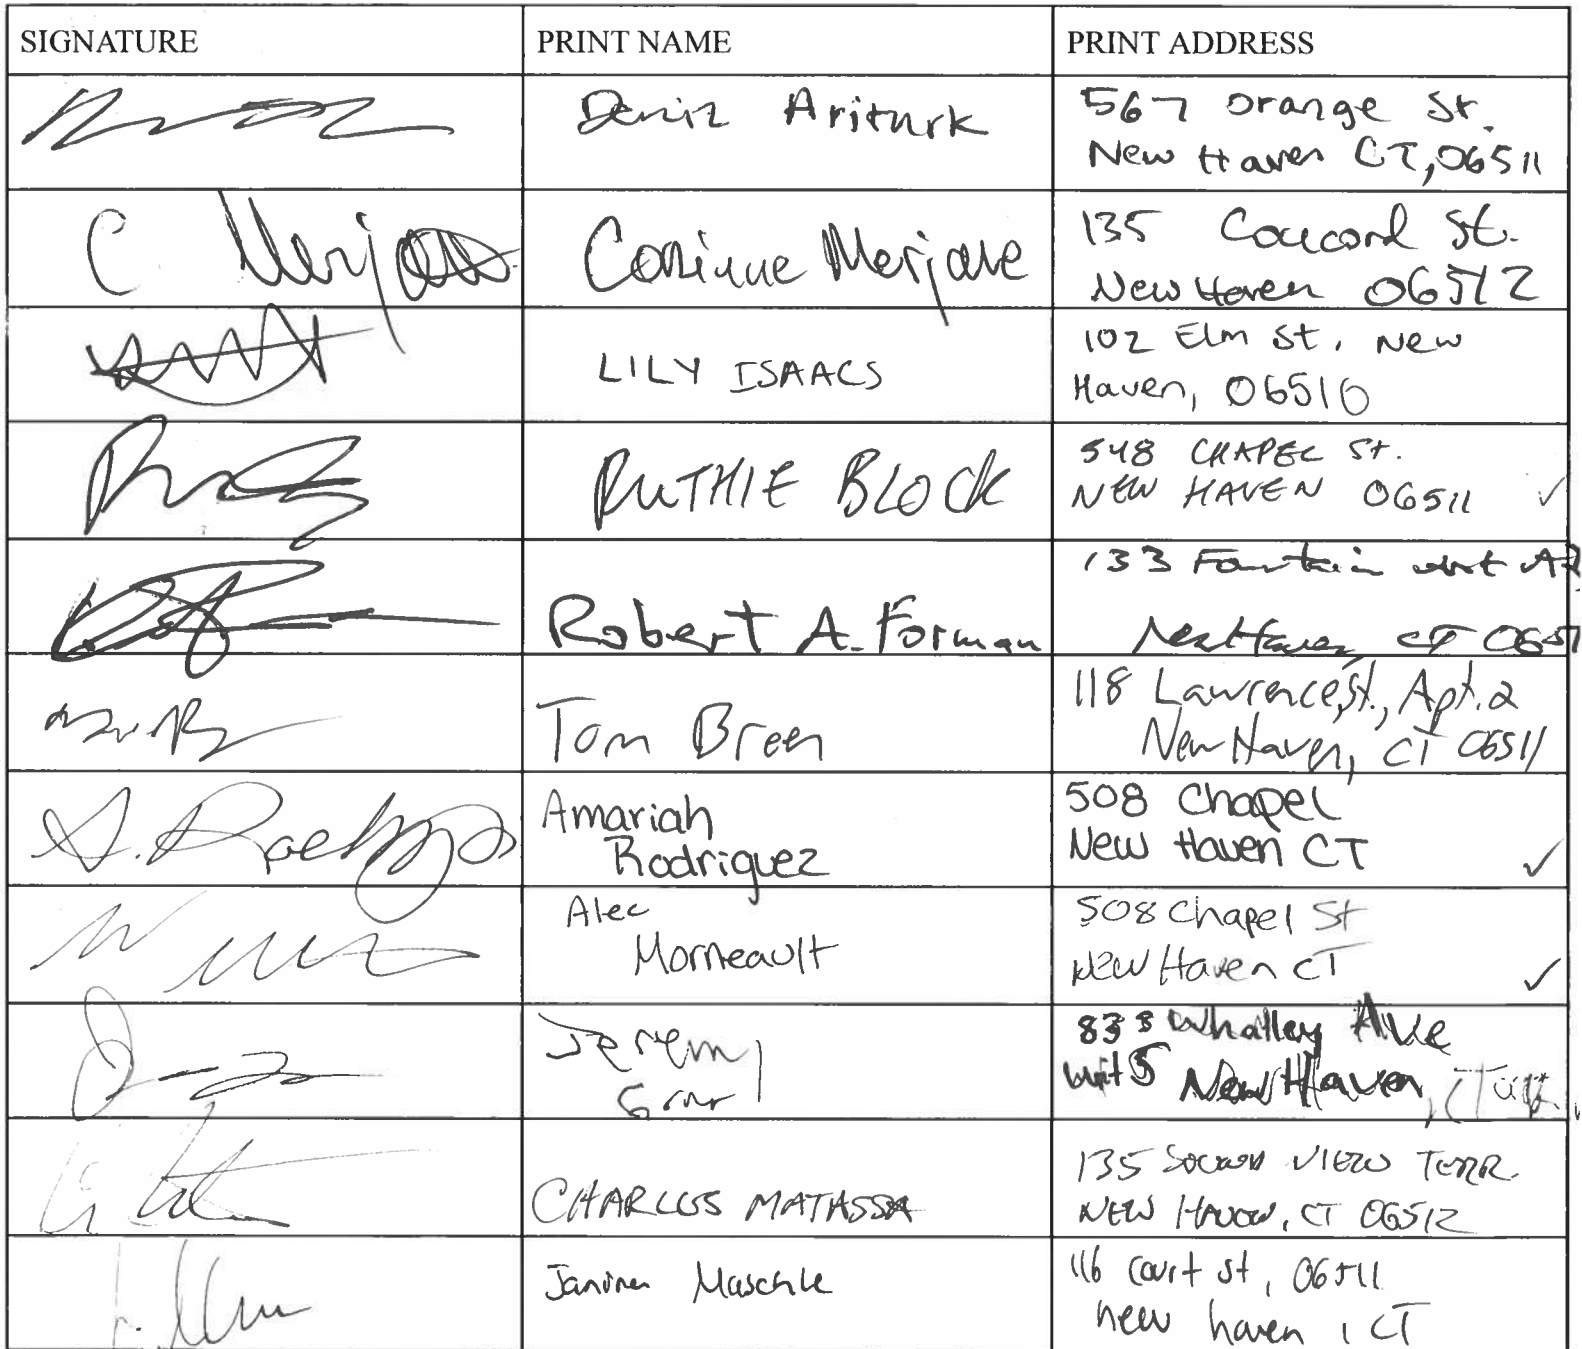 SIGNATURE PRINT NAME PRINT ADDRESS
Deniz Ariturk 567 Orange St.
New Haven CT, 06511
C Merjane Corinne Merjane 135 Concord St.
New Haven 06512
LILY ISAACS 102 Elm St. New
Haven, 06510
RUTHIE BLOCK 548 CHAPEL St.
NEW HAVEN 06511 ✓
Robert A. Forman 133 Fountain
New Haven CT 0651
Tom Breen 118 Lawrence St., Apt. 2
New Haven, CT 06511
A. Rodriguez Amariah
Rodriguez
508 Chapel
New Haven CT ✓
Alec
Morneault
508 Chapel St
New Haven CT ✓
Jeremy
833 Whalley Ave
unit 5 New Haven, CT
CHARLES MATASSA 135 SOUND VIEW TERR.
NEW HAVEN, CT 06512
Janina Maschke 116 Court st, 06511
new haven, CT